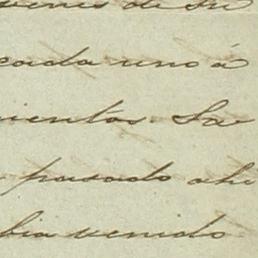 de su
cada uno á
mentos. La
pasado ahi
bia venido